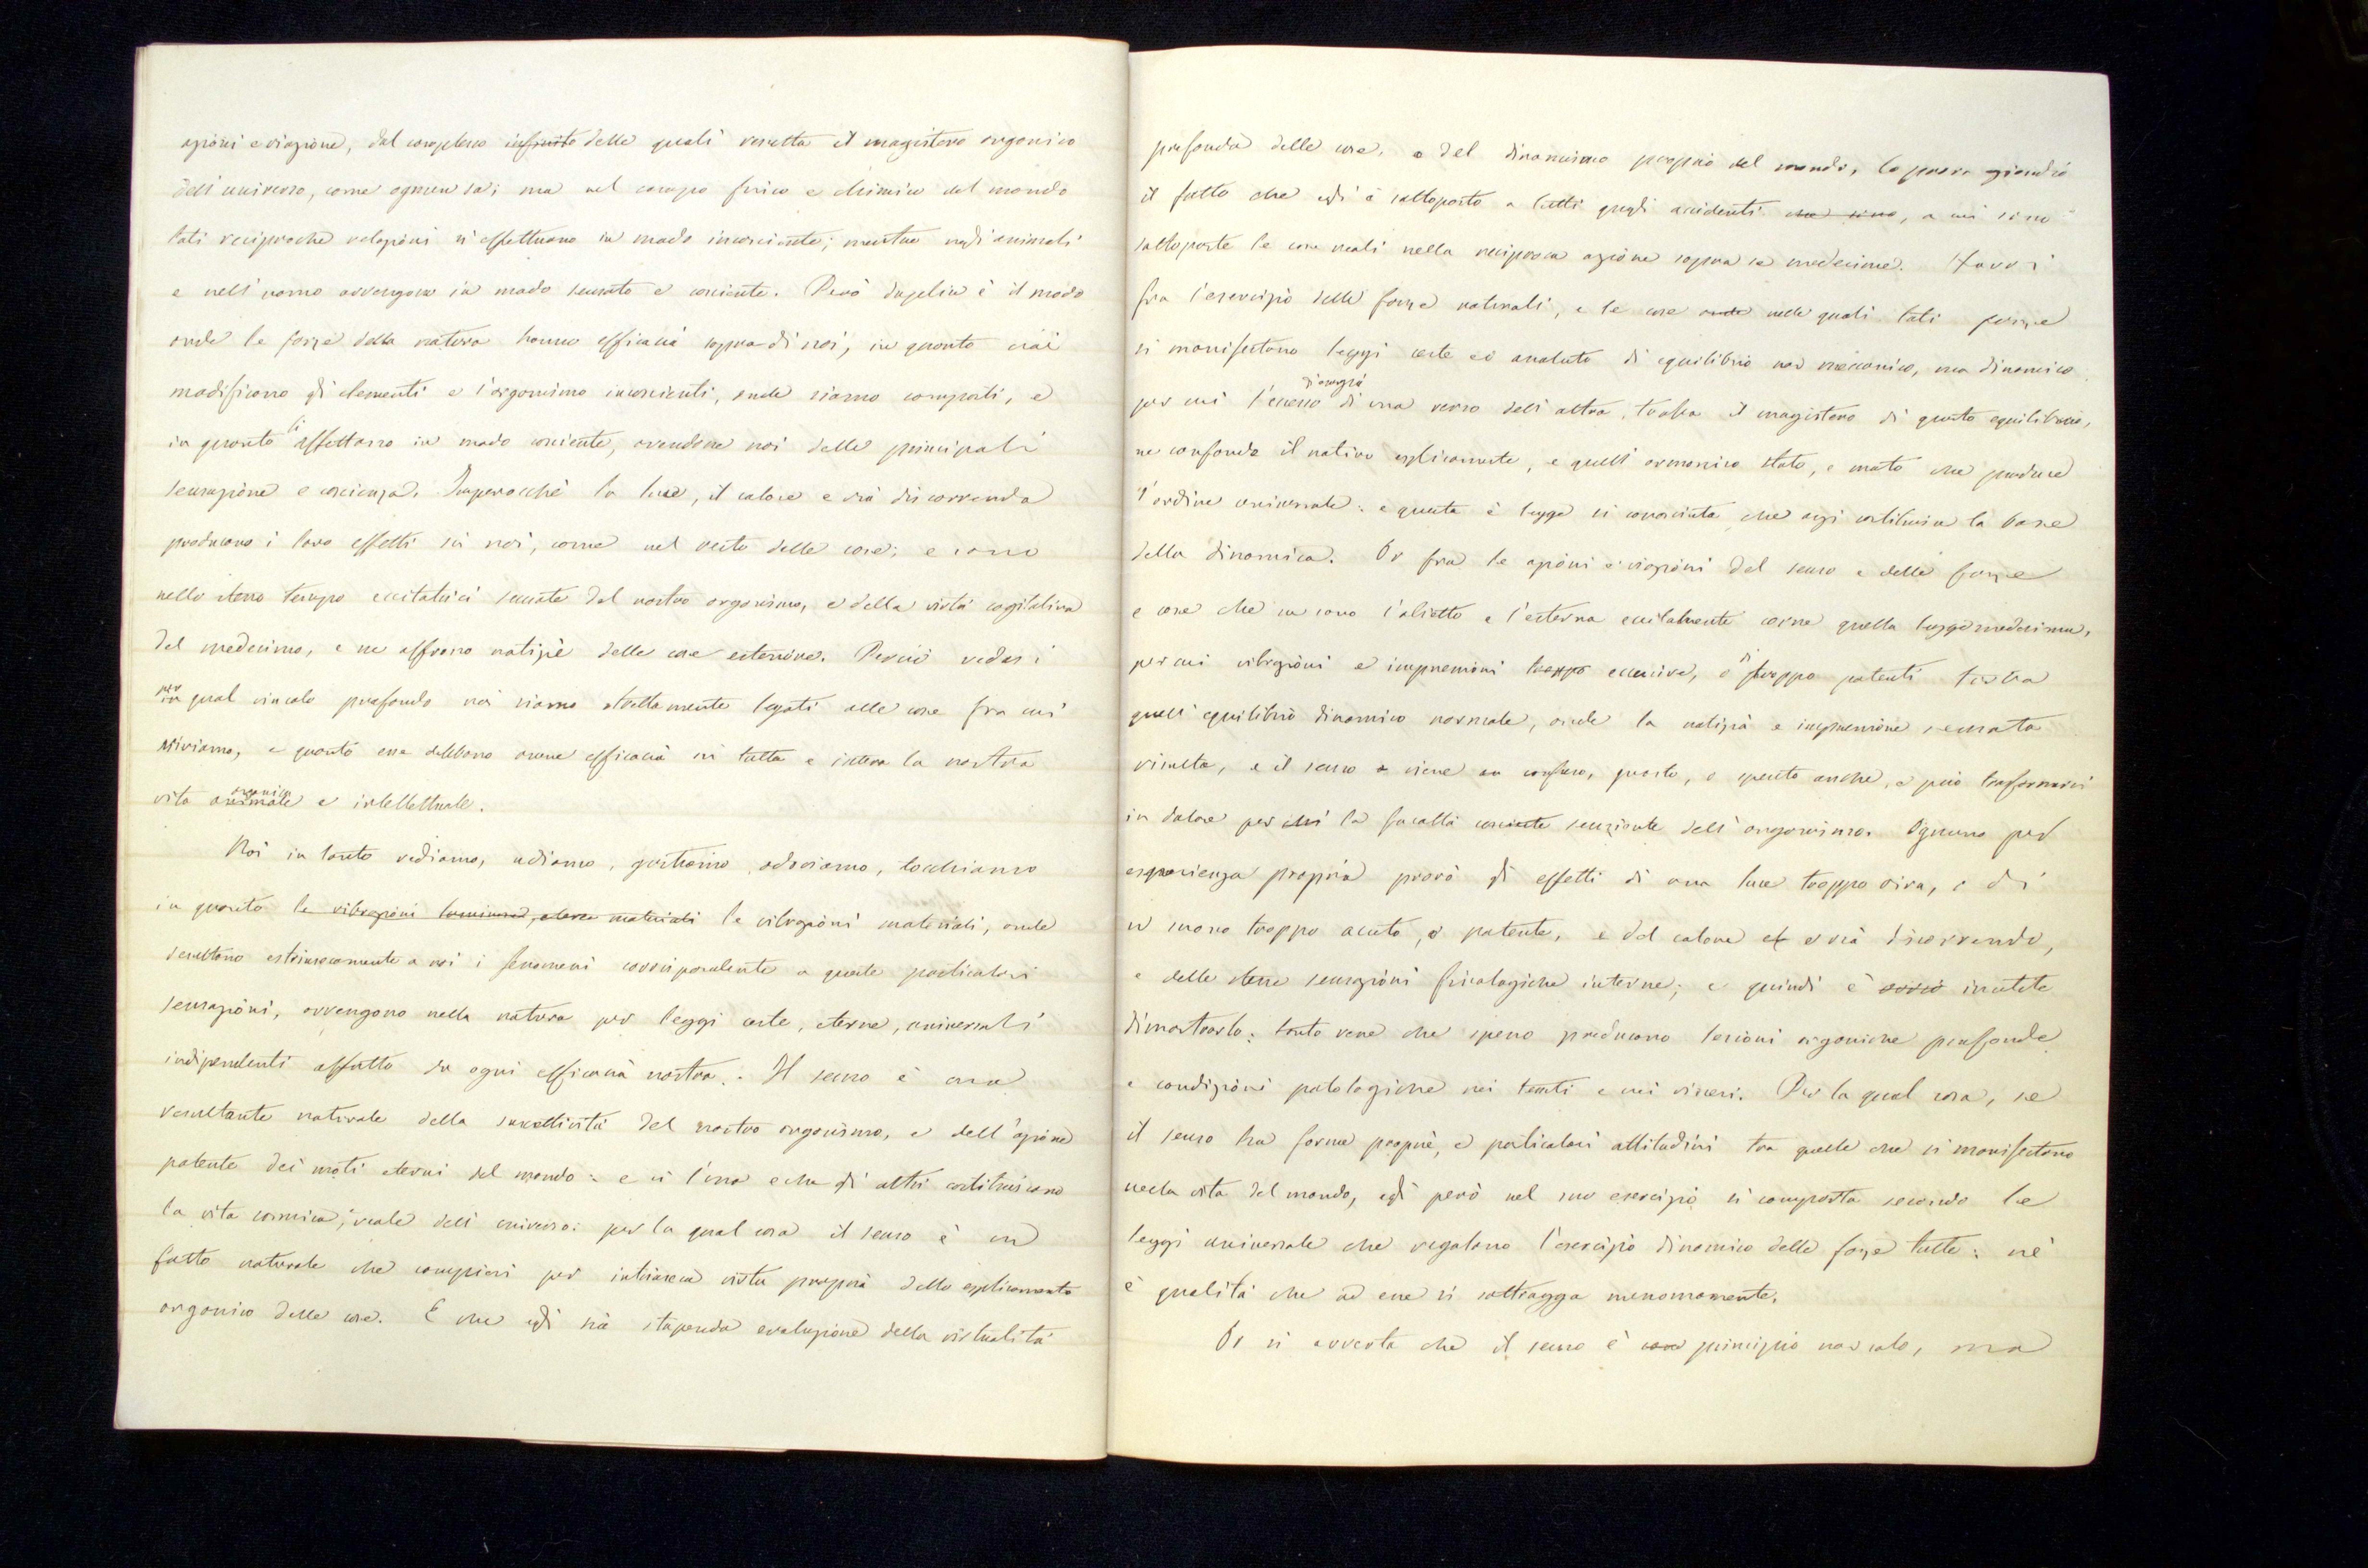 azioni e riazione, dal complesso infinito delle quali resulta il magistero organico
dell'universo, come ognun sa; ma nel campo fisico e chimico del mondo
tali reciproche relazioni si effettuano in modo inconsciente; mentre negli animali
e nell'uomo avvengono in modo sensato e cosciente. Però duplice è il modo
onde le forze della natura hanno efficacia sopra di noi, in quanto cioè
modificano gli elementi e l'organismo inconscienti, onde siamo composti, e
in quanto li affettano in modo cosciente, avendone noi delle principali
sensazione e coscienza. Imperocchè la luce, il calore e via discorrendo
producono i loro effetti in noi, come nel resto delle cose; e sono
nello stesso tempo eccitatrici sensate del nostro organismo, e della virtù cogitativa
del medesimo, e ne offrono notizie delle cose esteriore. Perciò vedesi
per qual vincolo profondo noi siamo strettamente legati alle cose fra cui
viviamo, e quanto esse debbano avere efficacia in tutta e intera la nostra
vita animale organica e intellettuale.
Noi in tanto vediamo, udiamo, gustiamo, odoriamo, tocchiamo
in quanto le vibrazioni luminose, eteree materiali le vibrazioni materiali, onde
resultano estrinsecamente a noi i fenomeni corrispondente a queste particolari
sensazioni, avvengono nella natura per leggi certe, eterne, universali
indipendenti affatto da ogni efficacia nostra. Il senso è una
resultante naturale della suscettività del nostro organismo, e dell'azione
potente dei moti eterni del mondo: e sì l'una e che gli altri costituiscono
la vita cosmica, reale dell'universo: per la qual cosa il senso è un
fatto naturale che compiesi per intrinseca virtù propria dello esplicamento
organico delle cose. E che egli sia stupenda evoluzione della virtualità
profonda delle cose, e del dinamismo proprio del mondo, lo prova
il fatto che egli è sottoposto a tutti quegli accidenti che sono, a cui sono
sottoposte le cose reali nella reciproca azione sopra se medesime. Havvi
fra l'esercizio delle forze naturali, e le cose onde nelle quali tali forze
si manifestano leggi certe ed assolute di equilibrio non meccanico, ma dinamico
per cui l'eccesso di energia di una verso dell'altra, turba il magistero di questo equilibrio,
ne confonde il nativo esplicamento, e quell'armonico stato, e moto che produce
l'ordine universale: e questa è legge sì conosciuta che oggi costituisce la base
della dinamica. Or fra le azioni e riazioni del senso e delle forze
e cose che ne sono l'obietto e l'esterna eccitamento corre quella legge medesima,
per cui vibrazioni e impressioni troppo eccessive, o di troppo potenti turba
quell'equilibrio dinamico normale, onde la notizia e impressione sensata
risulta, e il senso e viene confuso, guasto, o spento anche, e può trasformarsi
in dolore per la facoltà cosciente senziente dell'organismo. Ognuno per
esperienza propria provò gli effetti di una luce troppo viva, o di
un suono troppo acuto, o potente, e del calore e via discorrendo,
e delle stesse sensazioni fisiologiche interne; e quindi è ovvio inutile
dimostrarlo: tanto vero che spesso producono lesioni organiche profonde
e condizioni patologiche nei tessuti e nei visceri. Per la qual cosa, se
il senso ha forme proprie, e particolari attitudini tra quelle che si manifestano
nella vita del mondo, egli però nel suo esercizio si comporta secondo le
leggi universale che regolano l'esercizio dinamico delle forze tutte: nè
è qualità che ad esse si sottragga menomamente.
Or si avverta che il senso è principio non solo, ma